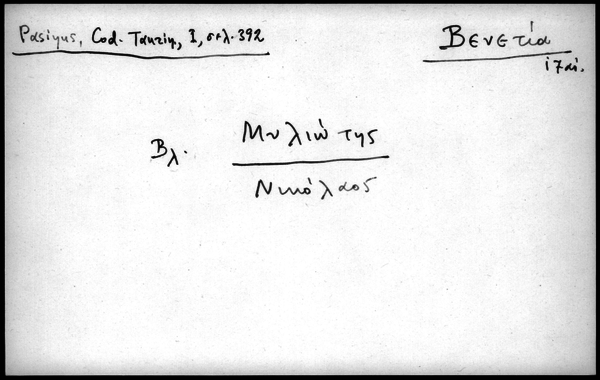 Pasinus, Cod. Taurin, I, σελ. 392
Βενετία
17 αἰ.
Βλ. Μυλιώτης
Νικόλαος